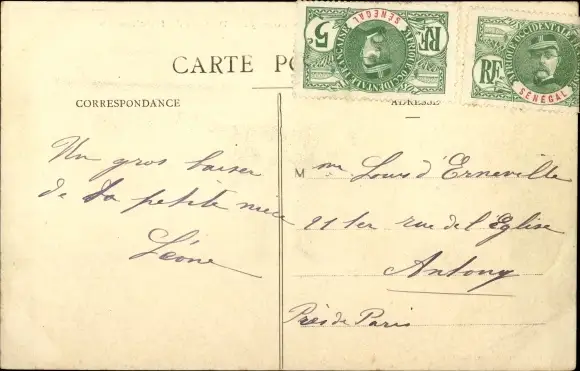 CARTE PO
CORRESPONDANCE
ADRESSE
5
SENEGAL
AFRIQUE OCCIDENTALE FRANÇAISE
RF
RF
AFRIQUE OCCIDENTALE
SENEGAL
Un gros baiser
de ta petite niece
Léone
M me Louis d'Erneville
21 ter rue de l'Eglise
Antony
Près de Paris